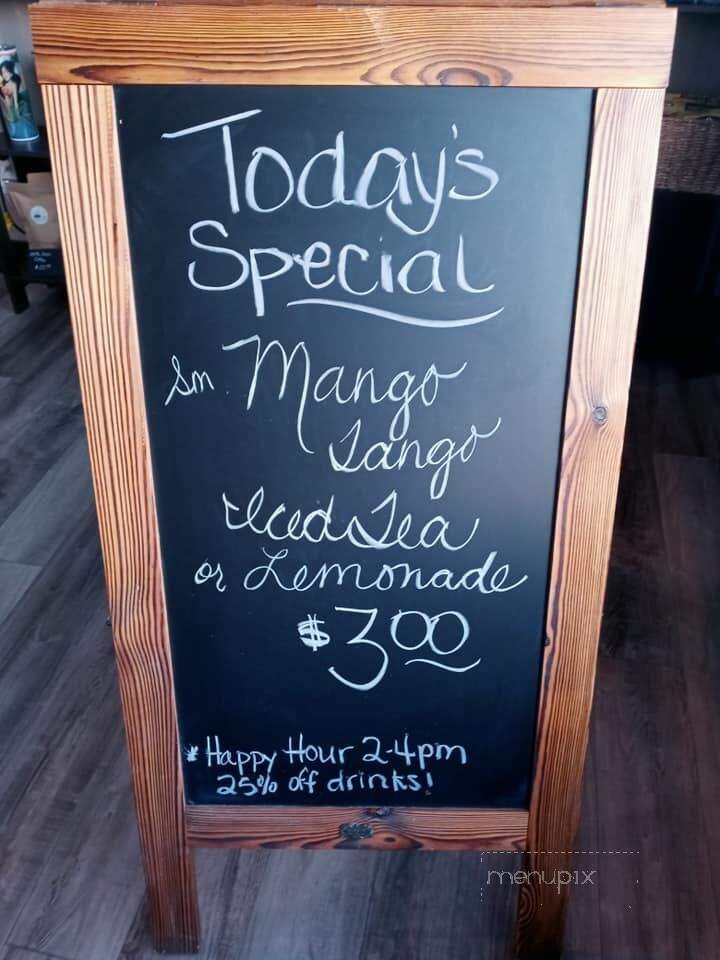 Today's
Special
Sm Mango
Tango
Iced Tea
or Lemonade
$3.00
* Happy Hour 2-4pm
25% off drinks!
menupix